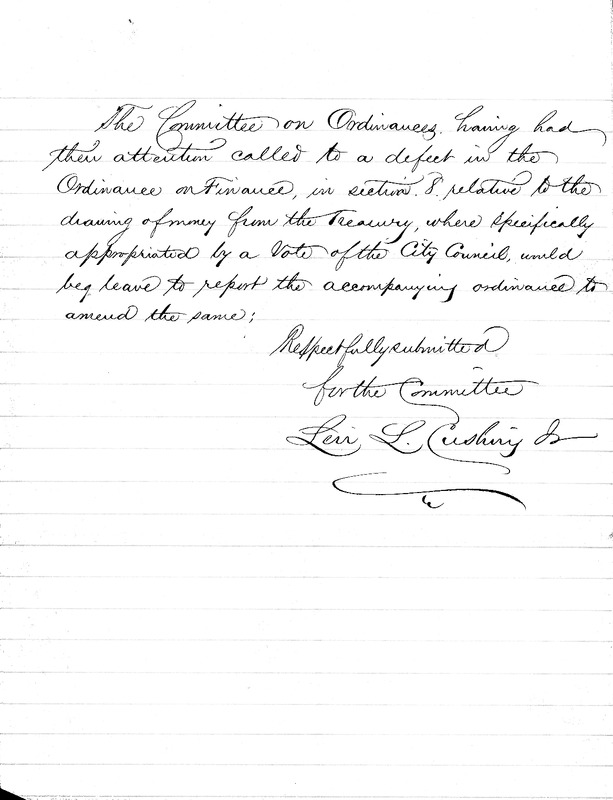 The Committee on Ordinances. having had
their attention called to a defect in the
Ordinance on Finance, in section. 8. relative to the
drawing of money from the Treasury, where specifically
appropriated by a Vote of the City Council, would
beg leave to report the accompanying ordinance to
amend the same;
Respectfully submitted
for the Committee
Levi L. Cushing Jr